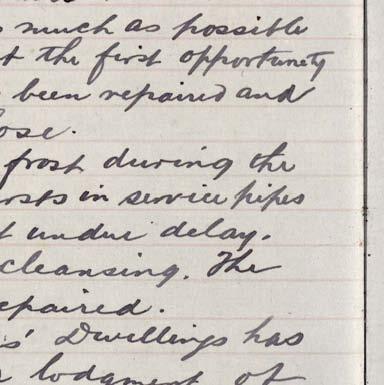 much as possible
the first opportunity
been repaired and
ose.
frost during the
rsts in service pipes
t undue delay.
cleansing. The
epaired.
s' Dwellings has
lodgment of